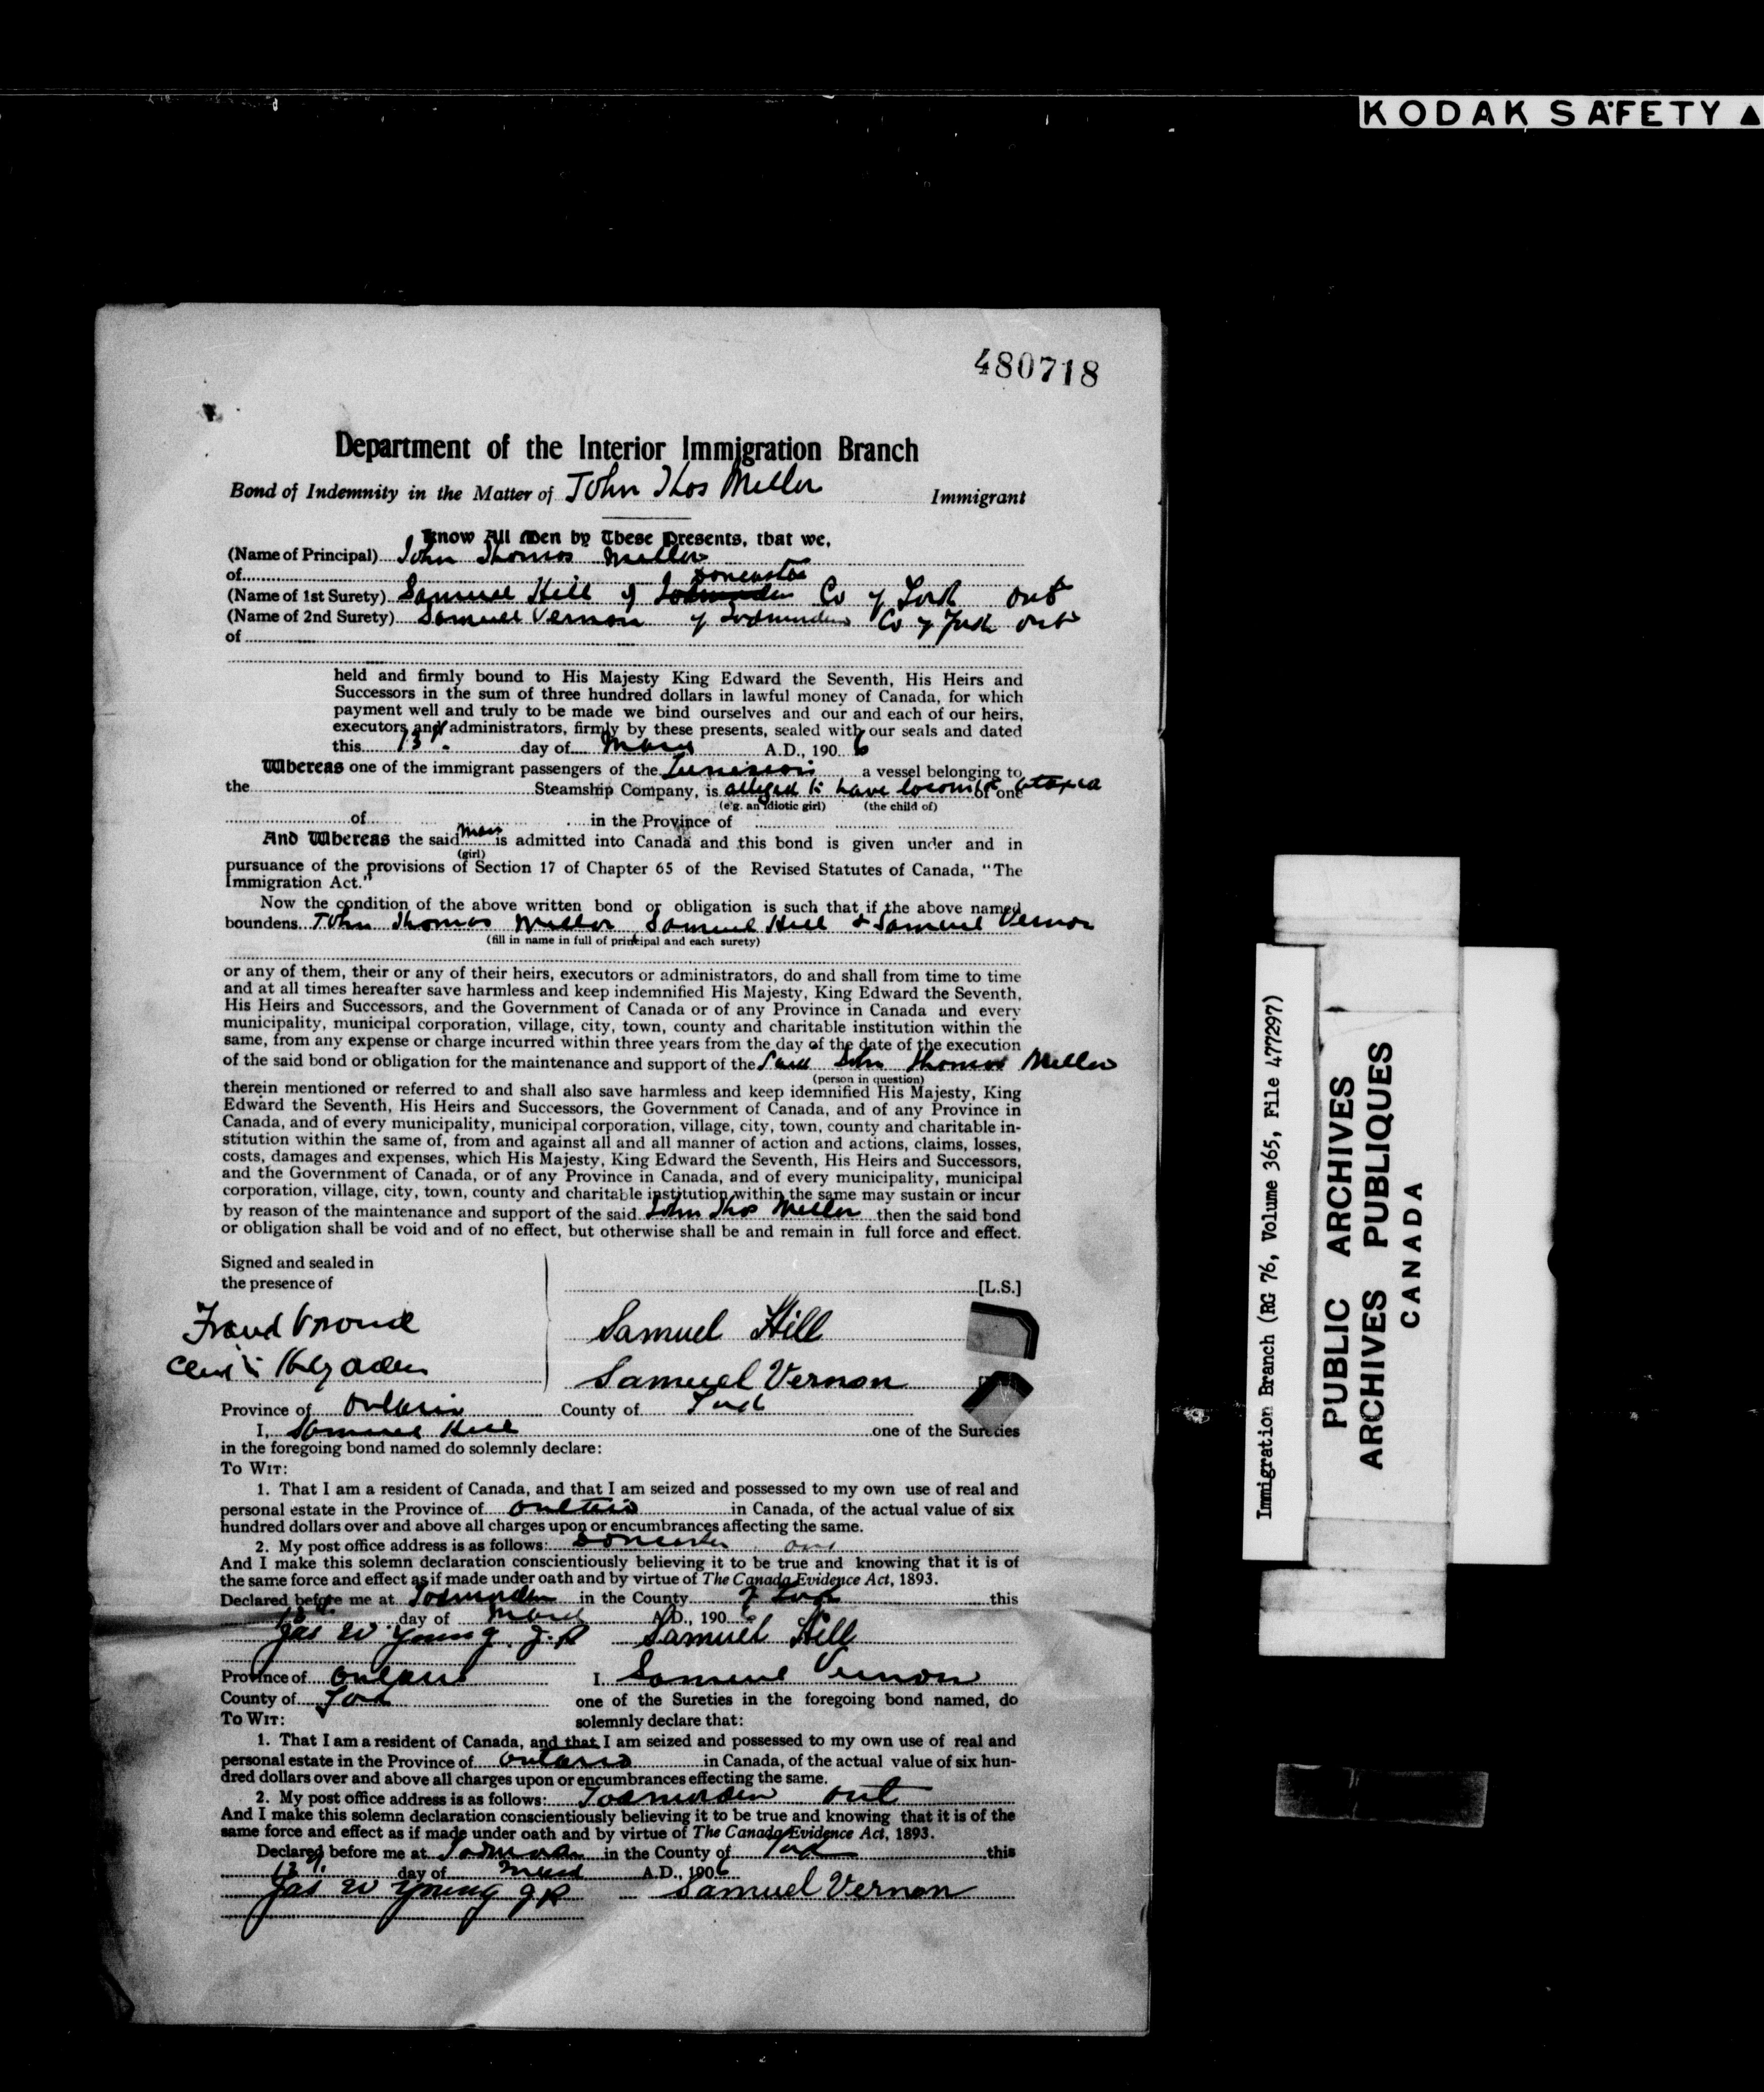 KODAK SAFETY ▲
480718
Department of the Interior Immigration Branch
Bond of Indemnity in the Matter of John Thos Mellor Immigrant
Know All Men by These Presents, that we,
(Name of Principal) John Thomas Mellor
of
Doncaster
(Name of 1st Surety) Samuel Hill of Todmorden Co of York Ont
(Name of 2nd Surety) Samuel Vernon of Todmorden Co of York Ont
of
held and firmly bound to His Majesty King Edward the Seventh, His Heirs and
Successors in the sum of three hundred dollars in lawful money of Canada, for which
payment well and truly to be made we bind ourselves and our and each of our heirs,
executors and administrators, firmly by these presents, sealed with our seals and dated
this 13 day of March A.D., 1906
Whereas one of the immigrant passengers of the Tunisian a vessel belonging to
the Steamship Company, is alleged to have locomotor ataxia of one
(e.g. an idiotic girl) (the child of)
of in the Province of
And Whereas the said man is admitted into Canada and this bond is given under and in
(girl)
pursuance of the provisions of Section 17 of Chapter 65 of the Revised Statutes of Canada, "The
Immigration Act."
Now the condition of the above written bond or obligation is such that if the above named
boundens John Thomas Mellor Samuel Hill & Samuel Vernon
(fill in name in full of principal and each surety)
or any of them, their or any of their heirs, executors or administrators, do and shall from time to time
and at all times hereafter save harmless and keep indemnified His Majesty, King Edward the Seventh,
His Heirs and Successors, and the Government of Canada or of any Province in Canada und every
municipality, municipal corporation, village, city, town, county and charitable institution within the
same, from any expense or charge incurred within three years from the day of the date of the execution
of the said bond or obligation for the maintenance and support of the said John Thomas Mellor
(person in question)
therein mentioned or referred to and shall also save harmless and keep idemnified His Majesty, King
Edward the Seventh, His Heirs and Successors, the Government of Canada, and of any Province in
Canada, and of every municipality, municipal corporation, village, city, town, county and charitable in-
stitution within the same of, from and against all and all manner of action and actions, claims, losses,
costs, damages and expenses, which His Majesty, King Edward the Seventh, His Heirs and Successors,
and the Government of Canada, or of any Province in Canada, and of every municipality, municipal
corporation, village, city, town, county and charitable institution within the same may sustain or incur
by reason of the maintenance and support of the said John Thos Mellor then the said bond
or obligation shall be void and of no effect, but otherwise shall be and remain in full force and effect.
Signed and sealed in
the presence of
[L.S.]
Samuel Hill
Samuel Vernon
Province of Ontario County of York
I, Samuel Hill one of the Sureties
in the foregoing bond named do solemnly declare:
To Wit:
1. That I am a resident of Canada, and that I am seized and possessed to my own use of real and
personal estate in the Province of Ontario in Canada, of the actual value of six
hundred dollars over and above all charges upon or encumbrances affecting the same.
2. My post office address is as follows: Doncaster Ont
And I make this solemn declaration conscientiously believing it to be true and knowing that it is of
the same force and effect as if made under oath and by virtue of The Canada Evidence Act, 1893.
Declared before me at Todmorden in the County of York this
13th day of March A.D., 1906
Jas W Young J.P. Samuel Hill
Province of Ontario I Samuel Vernon
County of York one of the Sureties in the foregoing bond named, do
To Wit: solemnly declare that:
1. That I am a resident of Canada, and that I am seized and possessed to my own use of real and
personal estate in the Province of Ontario in Canada, of the actual value of six hun-
dred dollars over and above all charges upon or encumbrances effecting the same.
2. My post office address is as follows: Todmorden Ont
And I make this solemn declaration conscientiously believing it to be true and knowing that it is of the
same force and effect as if made under oath and by virtue of The Canada Evidence Act, 1893.
Declared before me at Todmorden in the County of York this
13th day of March A.D., 1906
Jas W Young JP Samuel Vernon
Immigration Branch (RG 76, Volume 365, File 477297)
PUBLIC ARCHIVES
ARCHIVES PUBLIQUES
CANADA